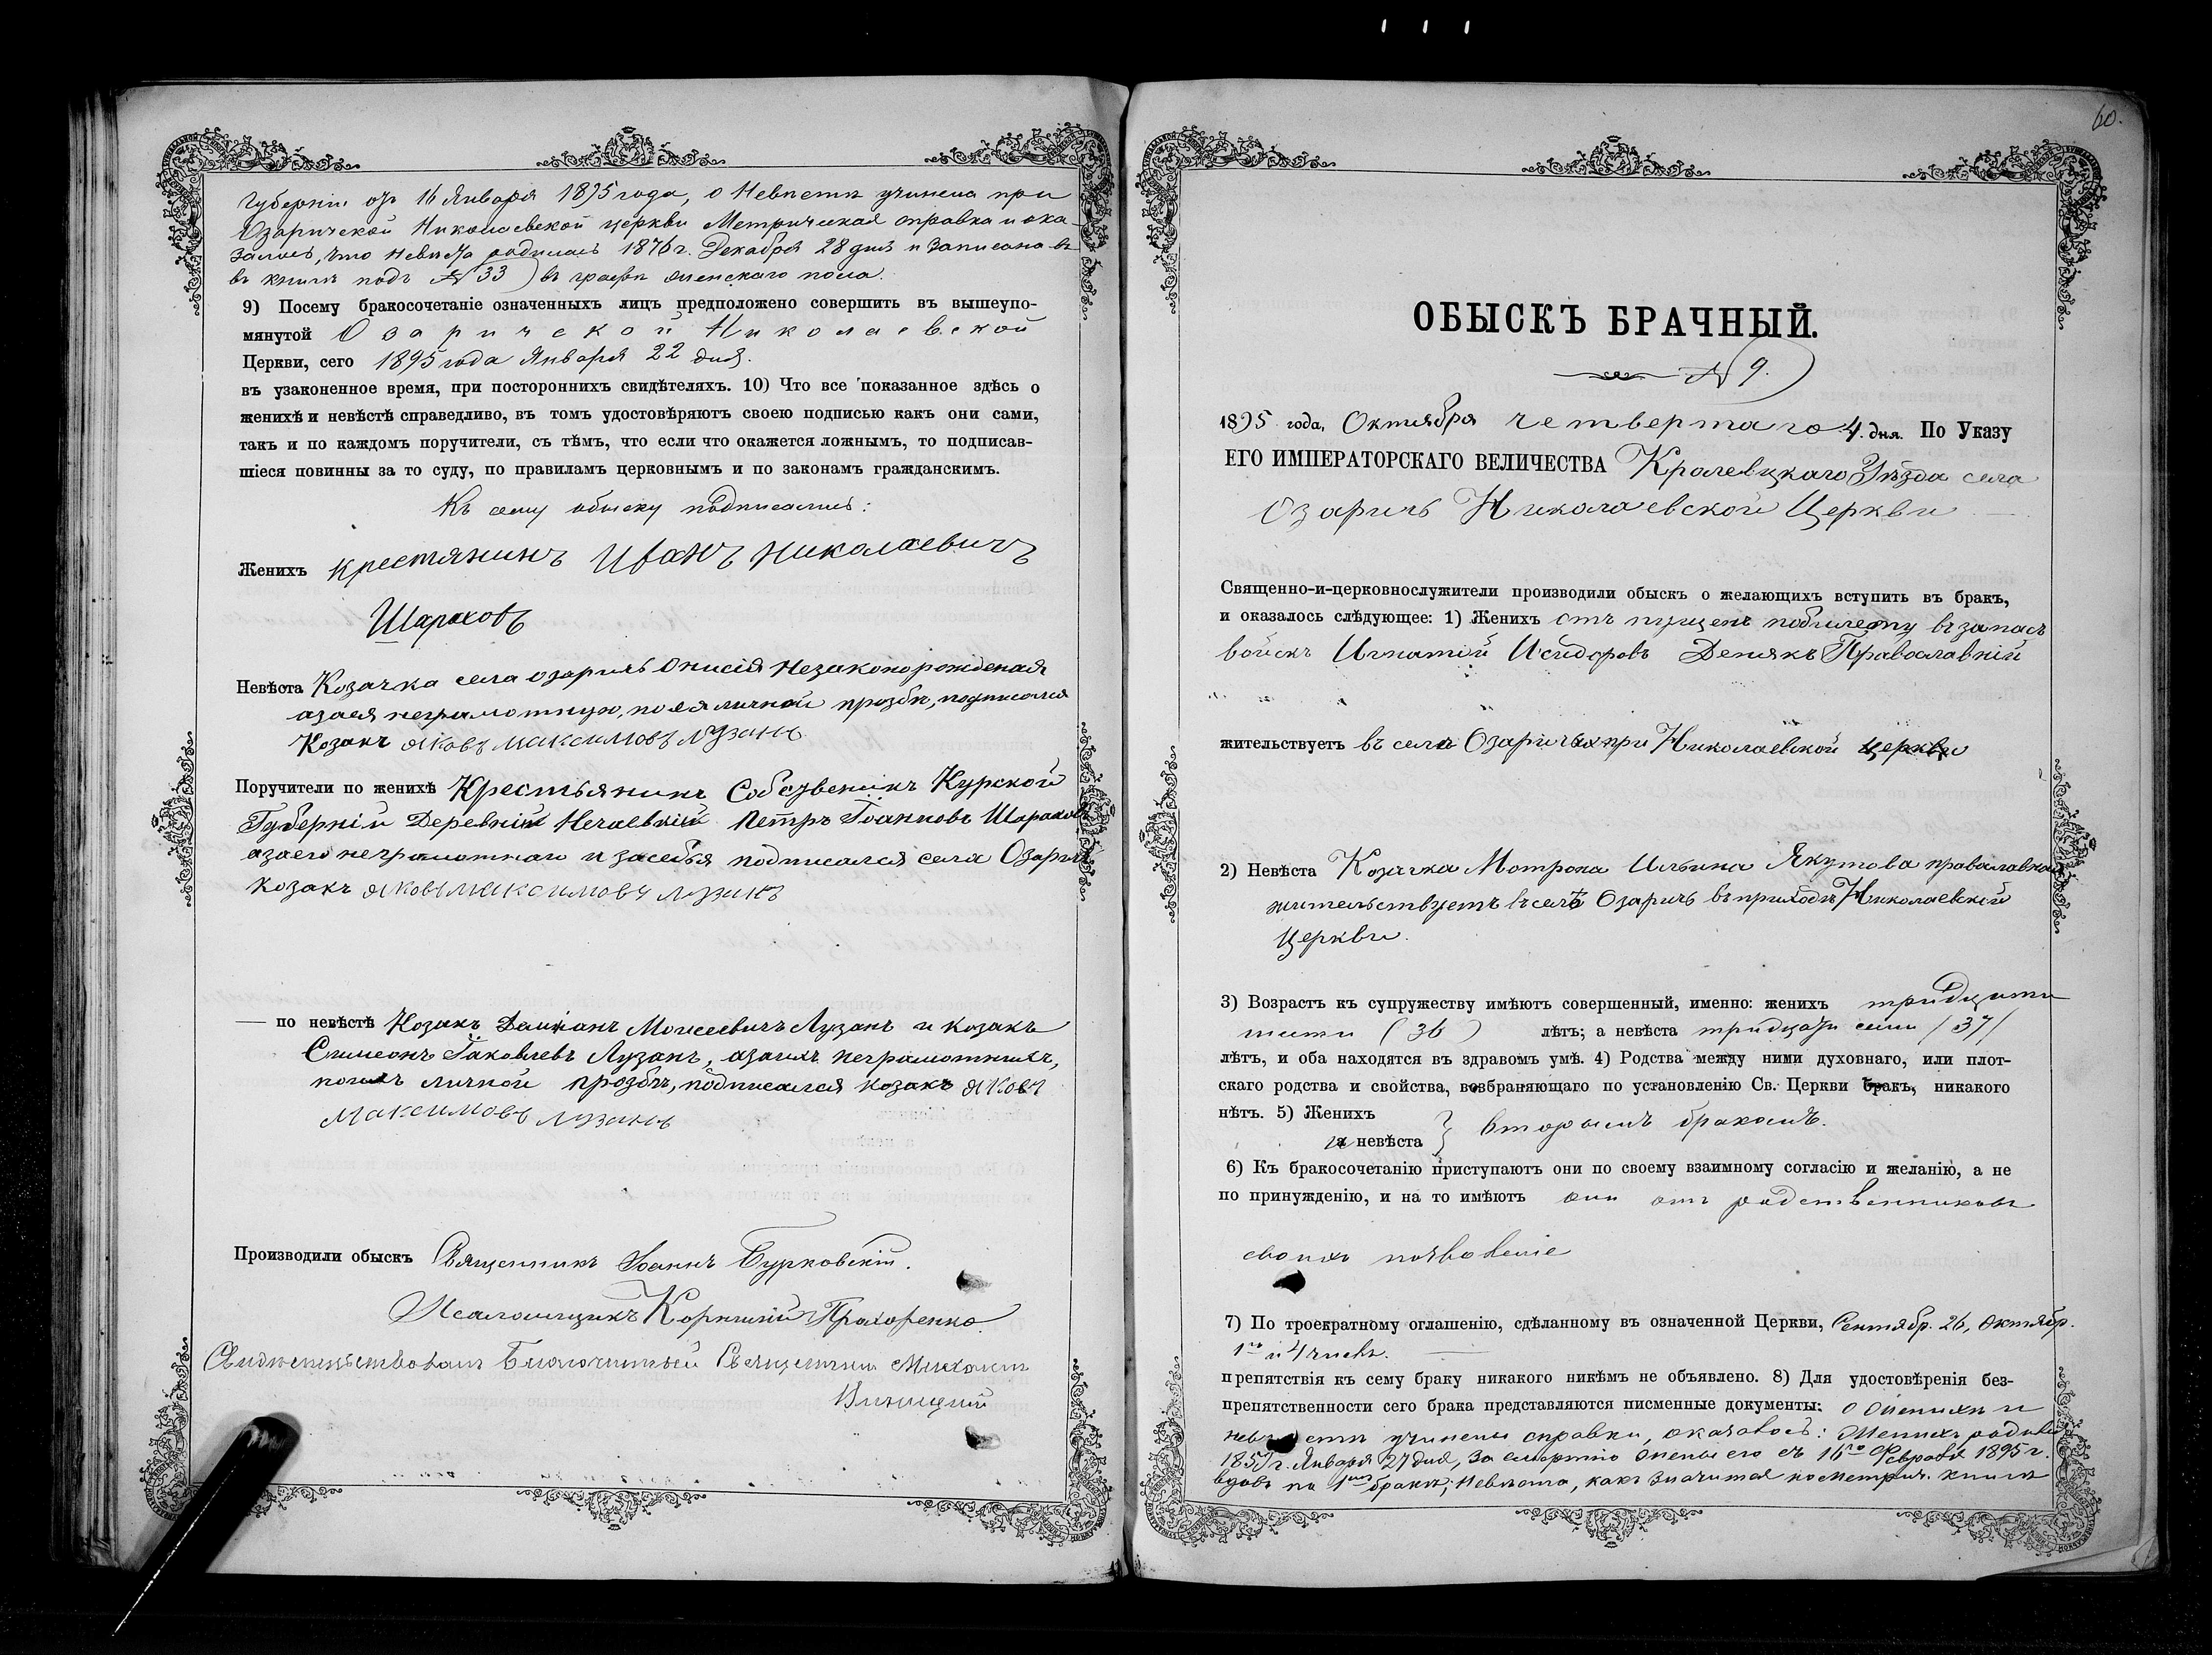 Губерніи отъ 16 Января 1895 года, о Невѣстѣ учинена при
Озаричской Николаевской церкви Метрическая справка и ока
залось, что Невѣста родилась 1876 г. Декабря 28 дня и записана въ
въ книгѣ подъ № 33 въ графѣ женскаго пола.
9) Посему бракосочетаніе означенныхъ лицъ предположено совершить въ вышеупо-
мянутой Озаричской Николаевской
Церкви, сего 1895 года Января 22 дня.
въ узаконенное время, при постороннихъ свидѣтеляхъ. 10) Что все показанное здѣсь о
женихѣ и невѣстѣ справедливо, въ томъ удостовѣряютъ своею подписью какъ они сами,
такъ и по каждомъ поручители, съ тѣмъ, что если что окажется ложнымъ, то подписав-
шіеся повинны за то суду, по правиламъ церковнымъ и по законамъ гражданскимъ.
Къ сему обыску подписались:
Женихъ крестянинъ Иванъ николаевичъ
Шараховъ
Невѣста Козачка села озаричь Онисія Незаконорожденая
азаея неграмотную, по ея личной прозбѣ, подписался
Козакъ яковъ максимовъ лузанъ
Поручители по женихѣ Крестьянинъ Собственикъ Курской
Губерніи Деревній Нечаевкій Петръ Іоанновъ Шарахов
азаего неграмотнаго и засебья подписался села Озарич
козакъ яковъ максимовъ лузанъ
— по невѣстѣ Козакъ Даміанъ Моисеевичъ Лузанъ и козакъ
Симеонъ Іаковлевъ Лузанъ, азаихъ неграмотныхъ,
поихъ личной прозбѣ, подписался козакъ яковъ
максимовъ лузанъ
Производили обыскъ Священникъ Іоаннъ Бурковскій.
Псаломщикъ Корнилій Прохоренко.
Свидѣтельствовалъ Благочинный Священникъ Михаилъ
60.
ОБЫСКЪ БРАЧНЫЙ.
№ 9.
1895 года, Октября четвертаго 4. дня. По Указу
ЕГО ИМПЕРАТОРСКАГО ВЕЛИЧЕСТВА Кролевецкаго Уѣзда села
Озаричь Николаевской Церкви
Священно-и-церковнослужители производили обыскъ о желающихъ вступить въ бракъ,
и оказалось слѣдующее: 1) Женихъ отъ пущенъ побилету въ запасъ
войскъ Игнатій Исидоровъ Денякъ Православній
жительствуетъ въ селѣ Озаричахъ при Николаевской церкви
2) Невѣста Козачка Мотрона Ильина Якутова православная
жительствуетъ въ селѣ Озаричь въ приходѣ Николаевскій
Церкви.
3) Возрастъ къ супружеству имѣютъ совершенный, именно: женихъ тридцати
шести (36) лѣтъ; а невѣста тридцати семи /37/
лѣтъ, и оба находятся въ здравомъ умѣ. 4) Родства между ними духовнаго, или плот-
скаго родства и свойства, возбраняющаго по установленію Св. Церкви бракъ, никакого
нѣтъ. 5) Женихъ
и невѣста } вторымъ бракомъ.
6) Къ бракосочетанію приступаютъ они по своему взаимному согласію и желанію, а не
по принужденію, и на то имѣютъ они отъ родственниковъ
своихъ позволеніе
7) По троекратному оглашенію, сдѣланному въ означенной Церкви, Сентябр. 26, Октябр.
1го и 4 числъ.
препятствія къ сему браку никакого никѣмъ не объявлено. 8) Для удостовѣренія без-
препятственности сего брака представляются писменные документы: о женихѣ и
невѣстѣ учинены справки, оказалось: Женихъ родився
Января 27 дня, за смертію жены его съ 16го Февраля 1895 г.
вдовъ по 1мъ бракѣ; Невѣста, какъ значится по метрич. книгѣ